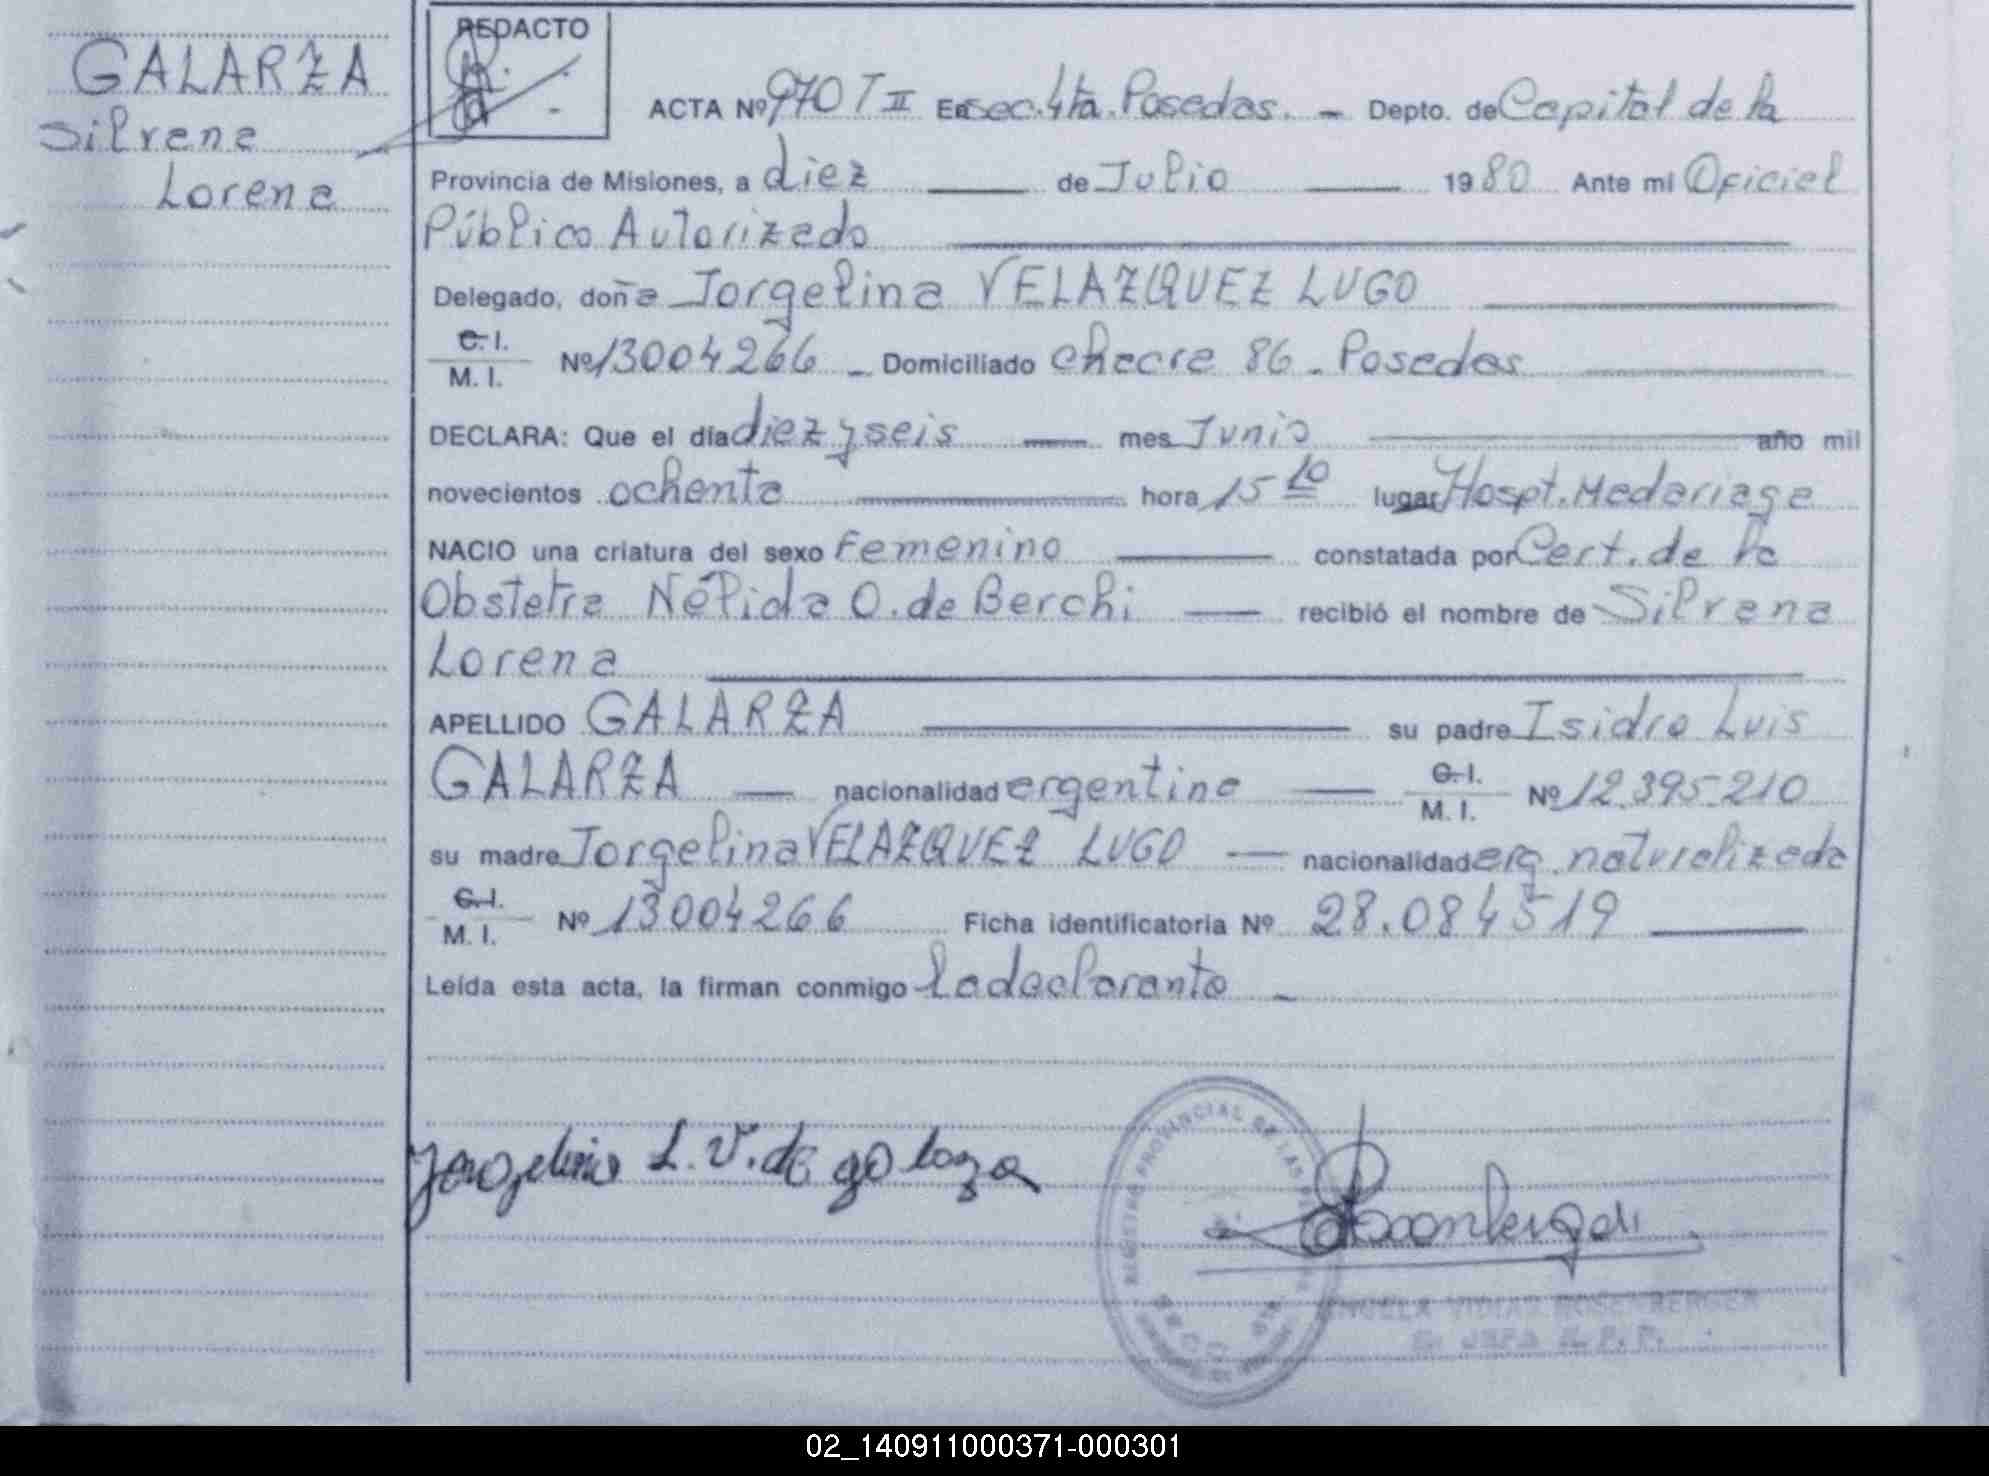 GALARZA
Silvana
Lorena
REDACTO
ACTA Nº 970 T II En sec. 4ta. Posadas. - Depto. de Capital de la
Provincia de Misiones, a diez de Julio 1980 Ante mi Oficial
Público Autorizado
Delegado, doña Jorgelina VELAZQUEZ LUGO
C. I.
M. I. Nº 13004266 - Domiciliado checre 86 - Posadas
DECLARA: Que el día diez y seis mes Junio año mil
novecientos ochenta hora 15 10 lugar Hospt. Madariaga
NACIO una criatura del sexo Femenino constatada por Cert. de la
Obstetra Nélida O. de Berchi recibió el nombre de Silvana
Lorena
APELLIDO GALARZA su padre Isidro Luis
GALARZA nacionalidad argentina C. I.
M. I. Nº 12.395.210
su madre Jorgelina VELAZQUEZ LUGO nacionalidad arg. naturalizada
C. I.
M. I. Nº 13004266 Ficha identificatoria Nº 28.084519
Leída esta acta, la firman conmigo la declarante -
Jorgelina L. V. de galarza
REGISTRO PROVINCIAL DE LAS
ANGELA VIDIAS ROSENBERGER
02_140911000371-000301